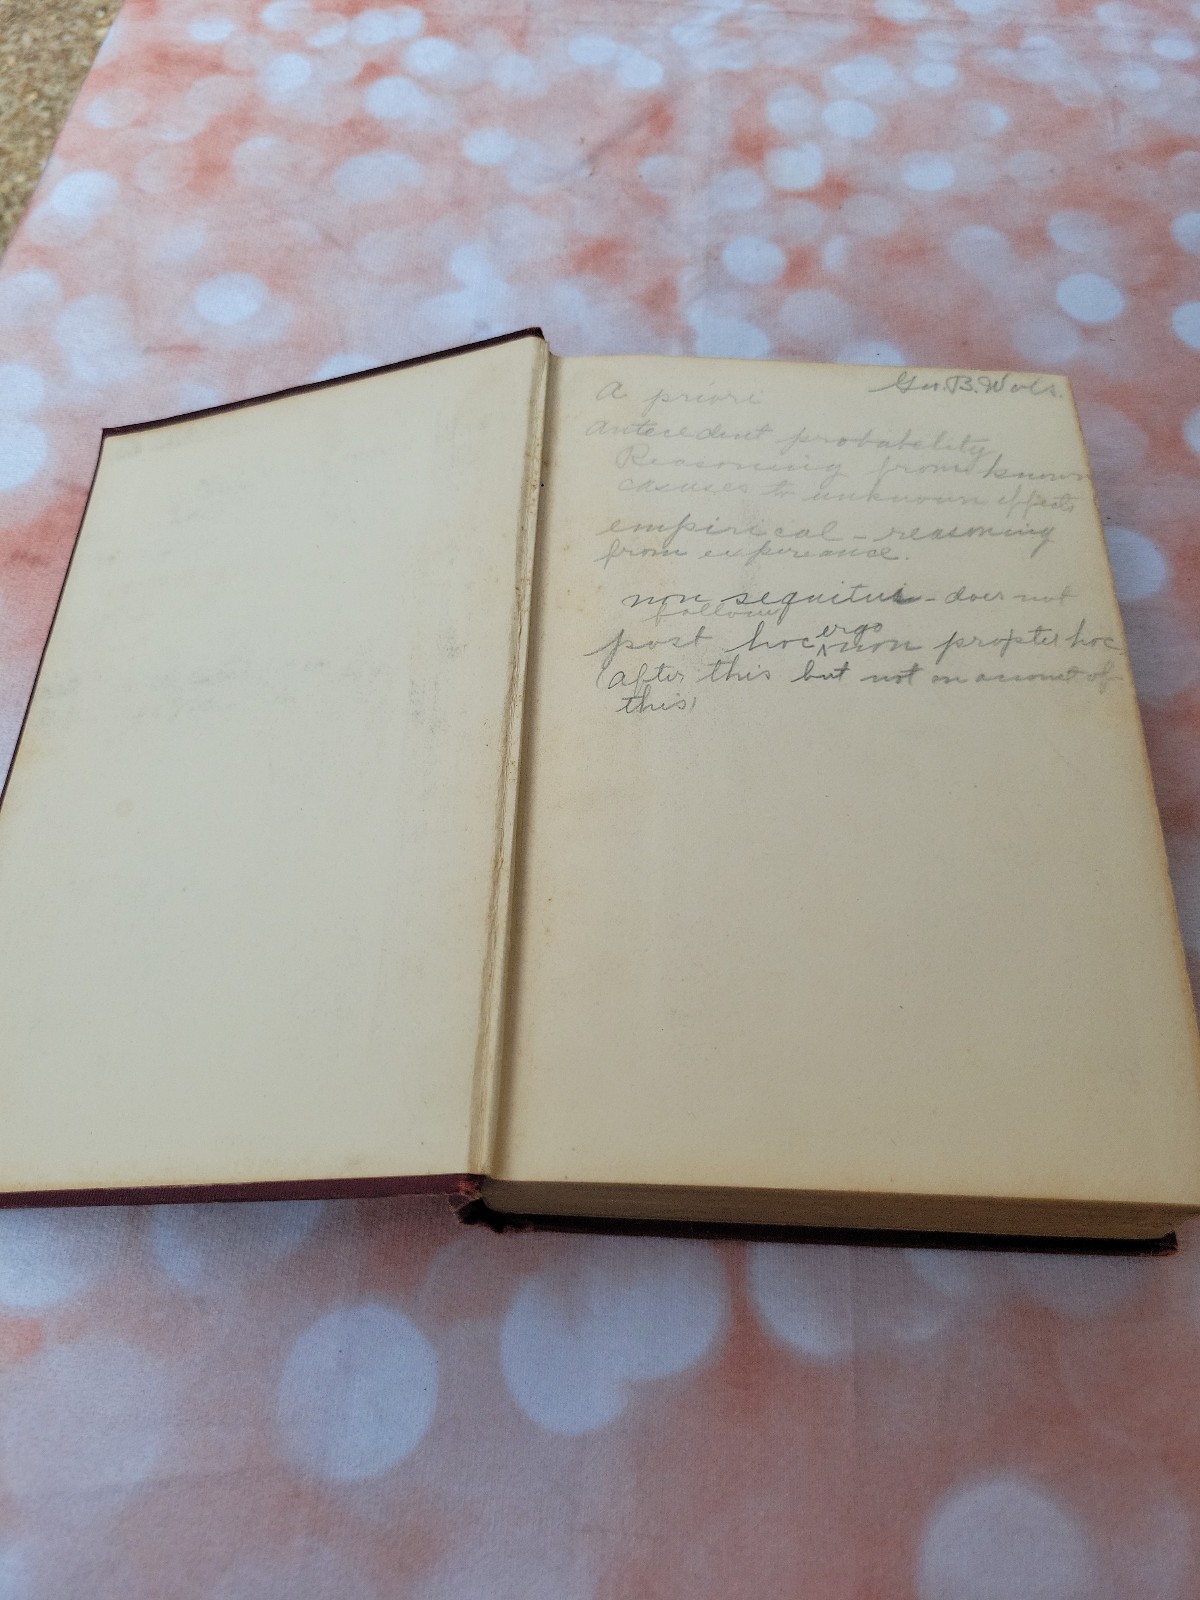 Geo. B. Wolr.
A priori
Antecedent probability
Reasoning from known
causes to unknown effects
empirical - reasoning
from experience.
non sequitur - does not
follow
post hoc ergo non propter hoc
(after this but not on account of
this)